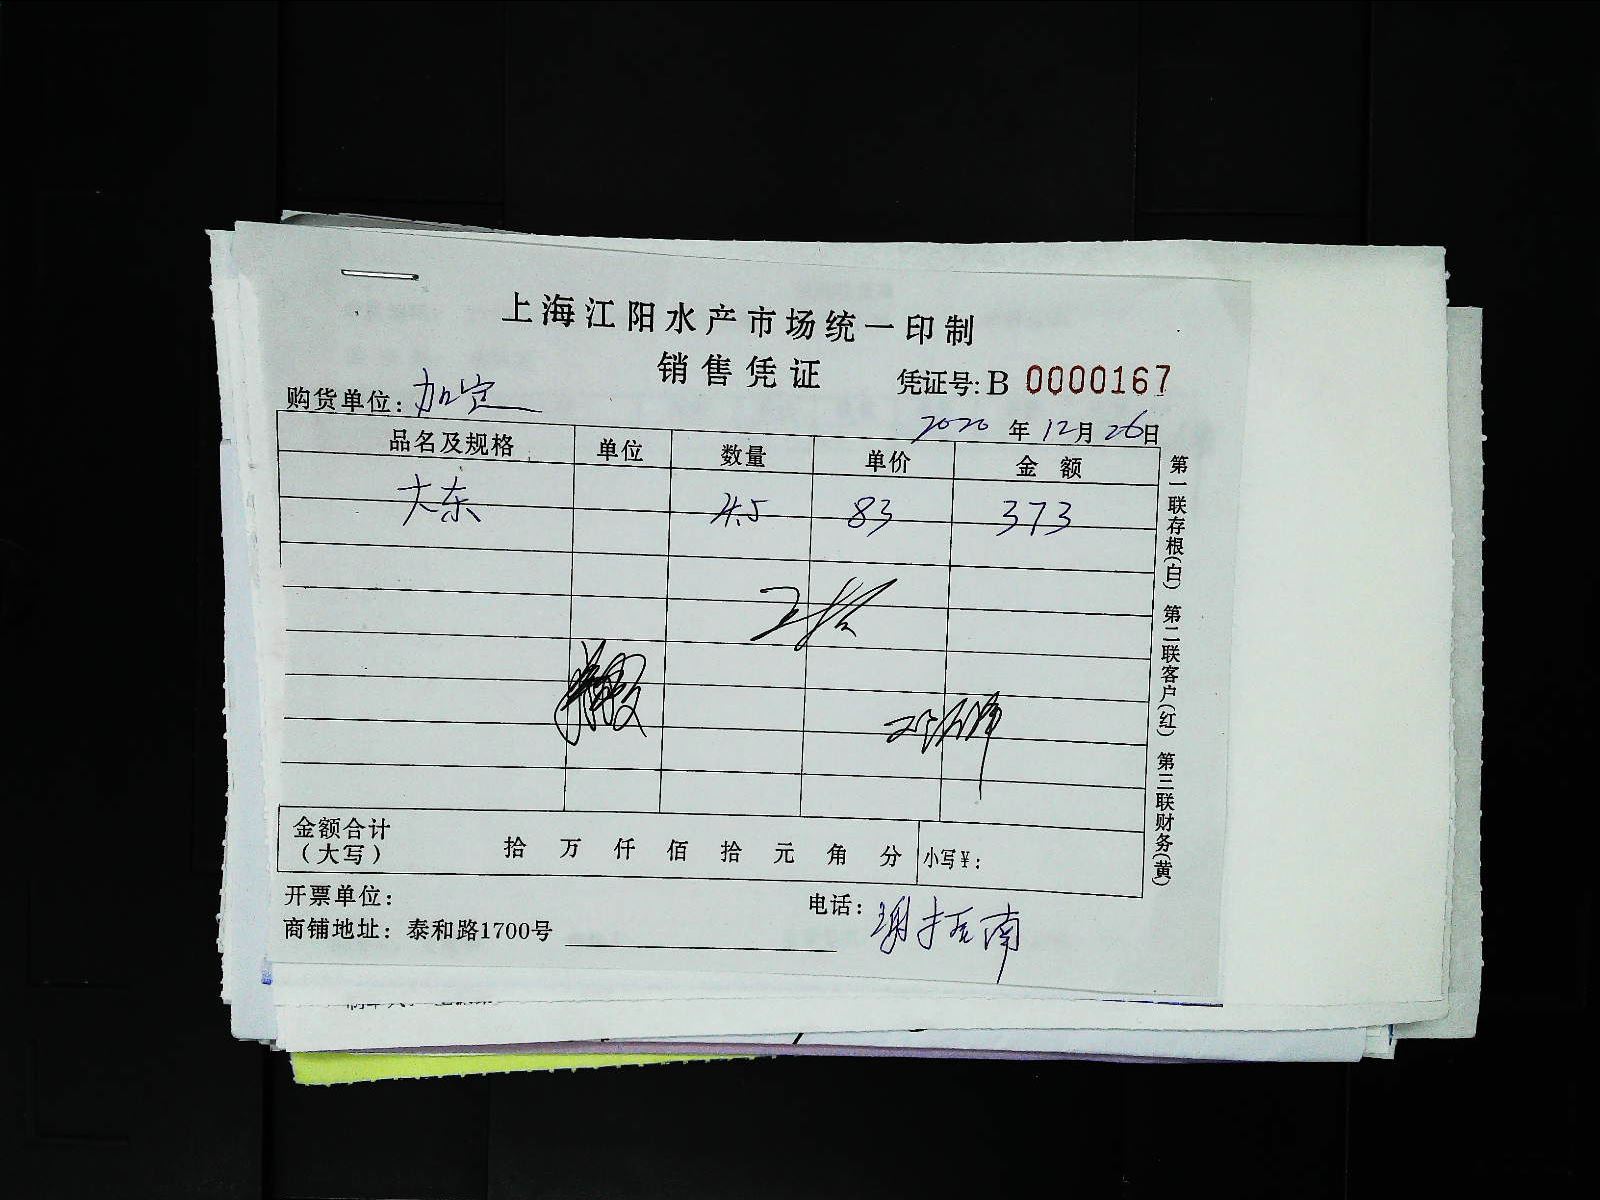 上海江阳水产市场统一印制
销售凭证
凭证号: B 0000167
购货单位: 加定
2020 年 12 月 26 日
品名及规格 单位 数量 单价 金 额
大东 4.5 83 373
金额合计
(大写) 拾 万 仟 佰 拾 元 角 分 小写¥:
开票单位:
电话:
商铺地址: 泰和路1700号
第一联存根(白) 第二联客户(红) 第三联财务(黄)